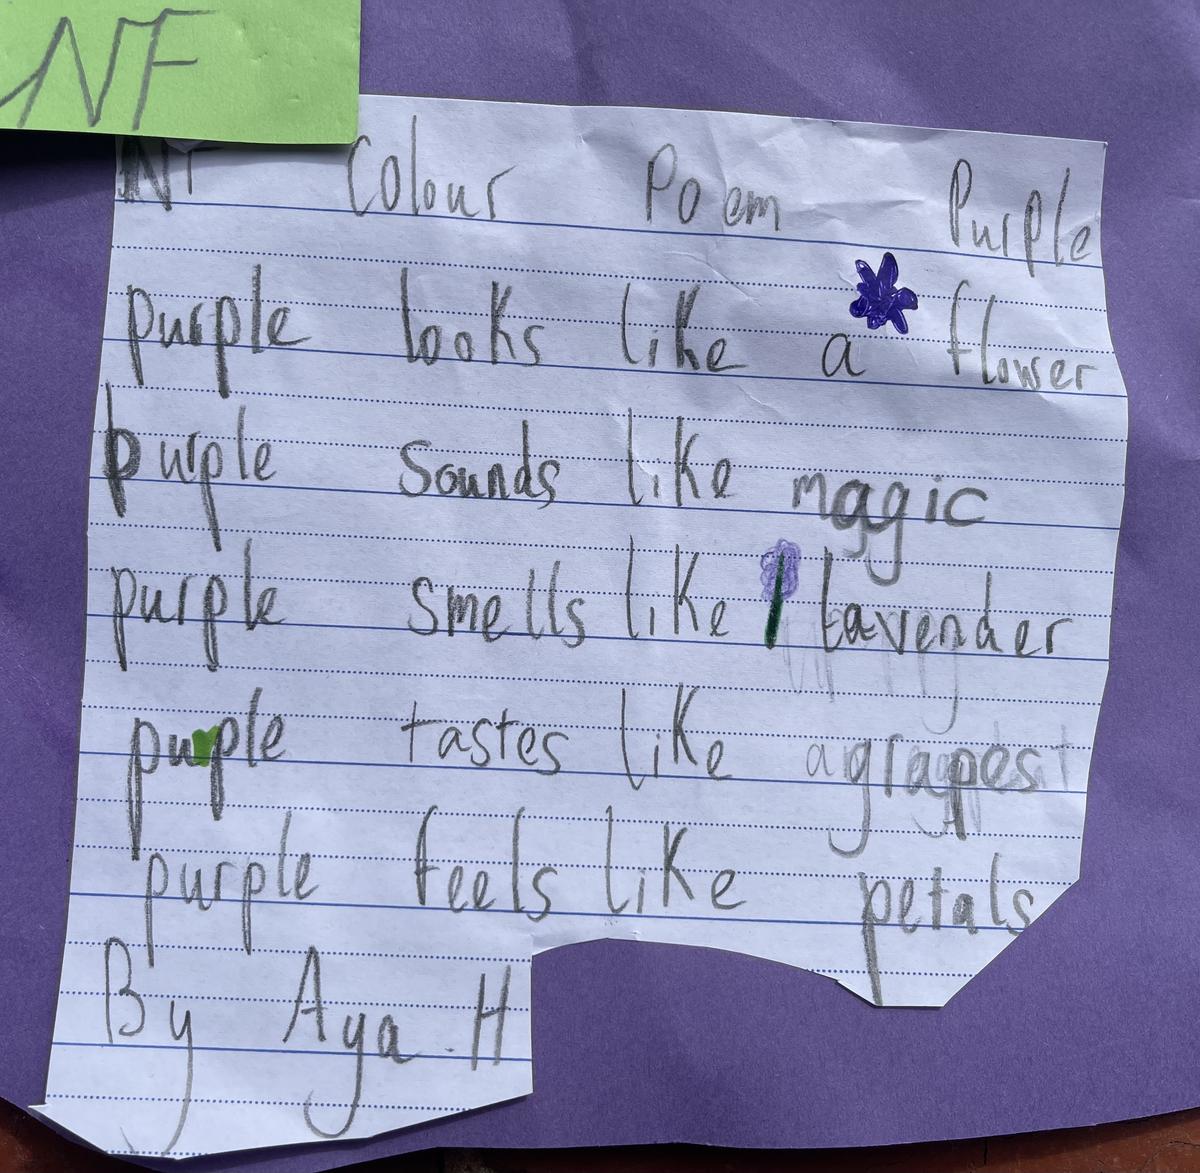 NF
NF Colour Poem Purple
purple looks like a flower
purple sounds like magic
purple smells like lavender
purple tastes like grapes
purple feels like petals
By Aya.H